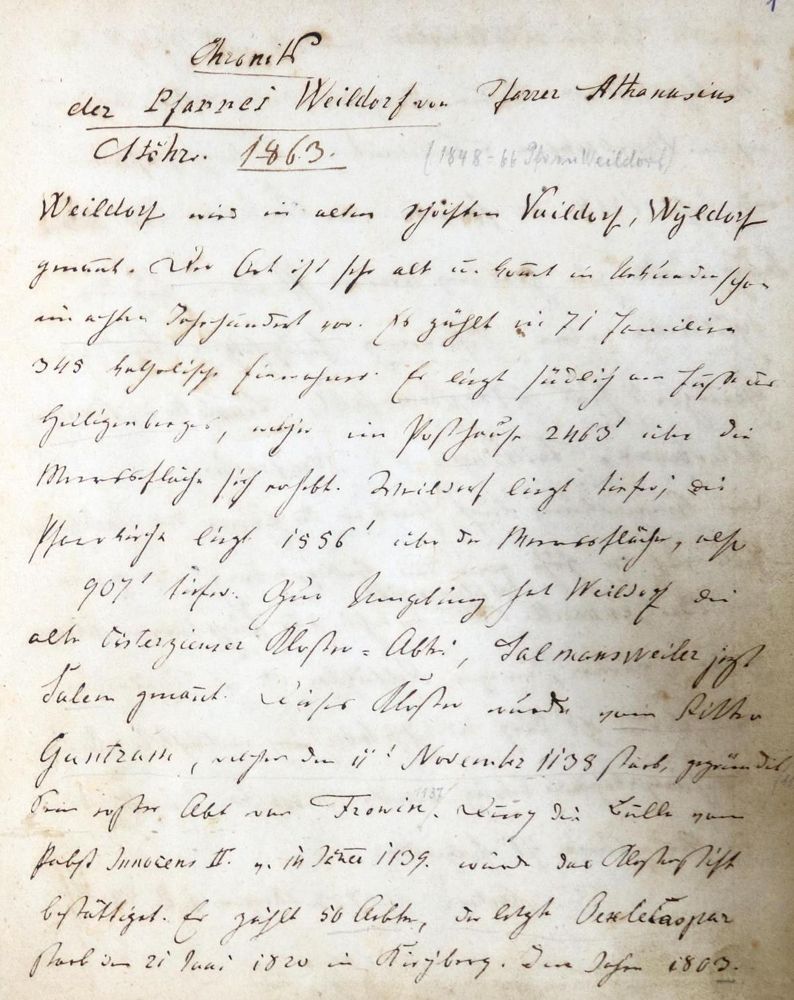 1
Chronik
der Pfarrei Weildorf von Pfarrer Athanasius
Stöhr. 1863.
(1848-66 Pfarrer Weildorf)
Weildorf wird in alten Schriften Vuildorf, Wyldorf
genannt. Der Ort ist sehr alt u. kommt in Urkunden schon
im achten Jahrhundert vor. Es zählt in 71 Familien
345 katholische Einwohner. Er liegt südlich am Fuße des
Heiligenberges, welcher im Posthause 2463' über die
Meeresfläche sich erhebt. Weildorf liegt tiefer; die
Pfarrkirche liegt 1556' über der Meeresfläche, also
907' tiefer. Zur Umgebung hat Weildorf die
alte Cisterzienser Kloster=Abtei, Salmansweiler jetzt
Salem genannt. Dieses Kloster wurde vom Ritter
Guntram, welcher den 11' November 1138 starb, gegründet,
Sein erster Abt war Frowin. Durch die Bulle vom
1137
Pabst Innocens II. v. Jäner 1139. wurde das Klosterstift
bestättiget. Er zählt 50 Aebte, der letzte Oexle Caspar
starb den 21 Juni 1820 in Kirchberg. Im Jahre 1803.